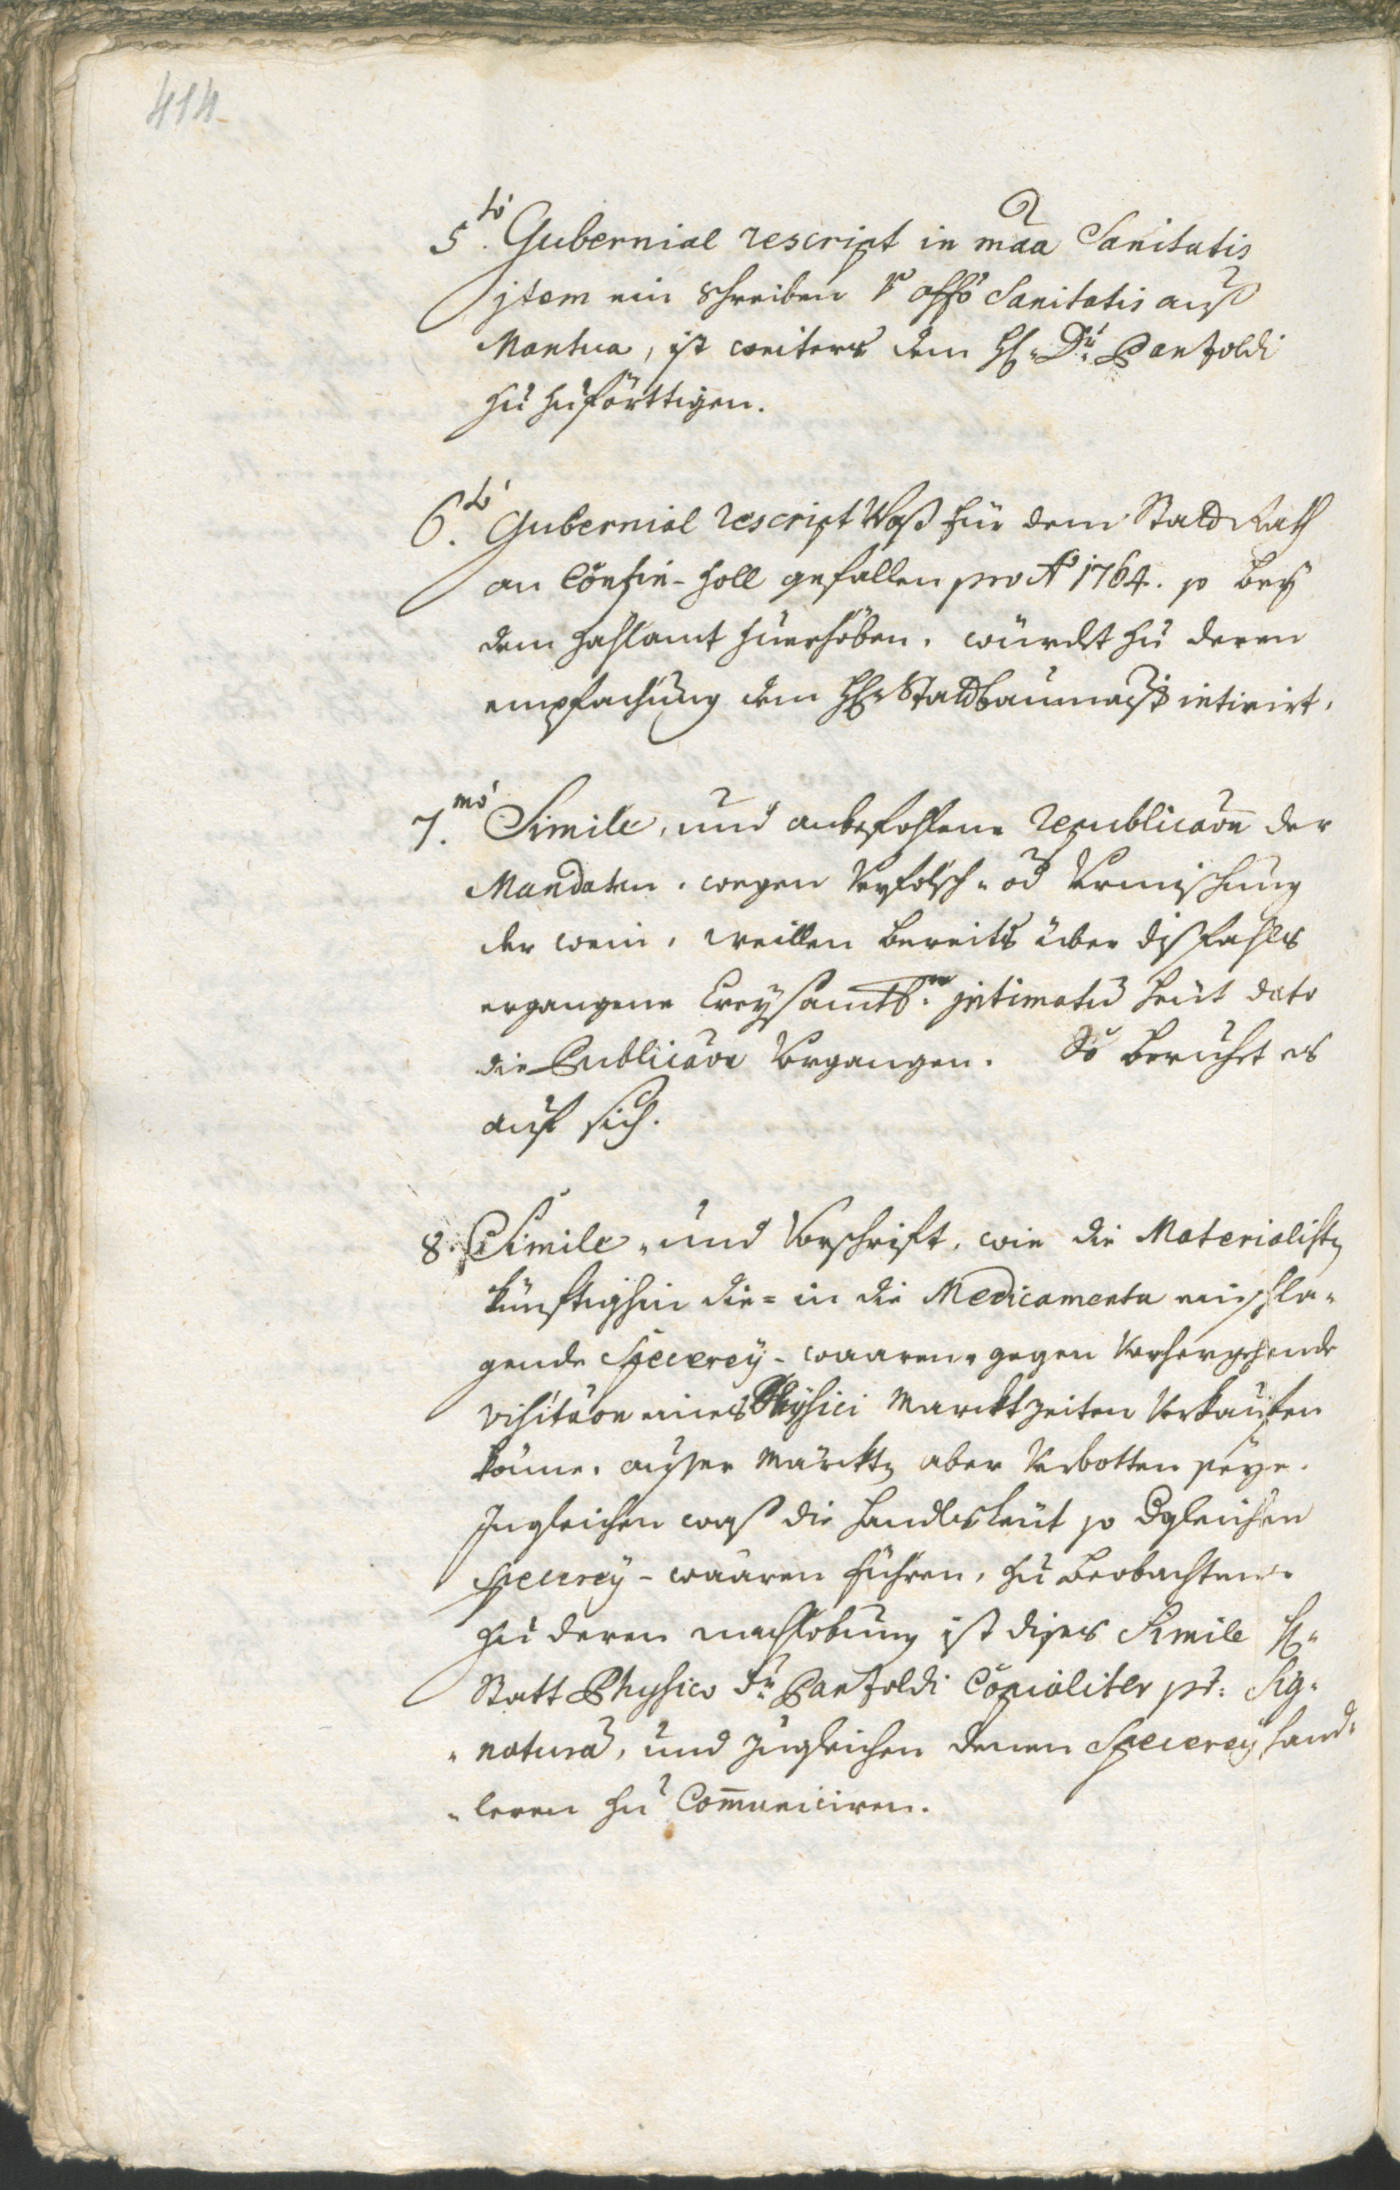 414
5.tò Gubernial rescript in m̃aa Sanitatis
jtem ein schreiben v. offõ Sanitatis auß
Mantua, ist weiters dem H: Dr. Panzoldi
zu zuförttigen.
6.tò Gubernial rescript Waß für dem StadtRath
an Confin-Zoll gefallen pro Aō 1764. so bey
dem Zahlamt zuerhöben, würdet zu deren
empfachung dem HE: Stadtbaumaistr intimirt.
7.mò Simile, und anbefohlene republicaōn der
Mandaten, wegen Verfälsch- od Vermischung
der wein, weillen bereits über dißfahls
ergangene Creysamts.en jntimatũ heut dato
die Publicaōn Vorgangen. So beruhet es
auf sich.
8. Simile, und Vorschrift, wie die Materialisten
künftighin die= in die Medicamenta einschla-
gende Specerey-waaren, gegen Vorhergehende
visitaōn eines Physici Marcktzeiten Verkauffen
könne, ausser Märckten aber Verbotten seye.
Jngleichen waß die handlsleüt so dgleichen
specerey-waaren führen, zu beobachten.
Zu deren nachlebung ist dises Simile H:
Statt Physico Dr. Panzoldi Copialiter pr: Sig-
-naturã, und zugleichen denen Specerey hand-
-leren zu Com̄uniciren.